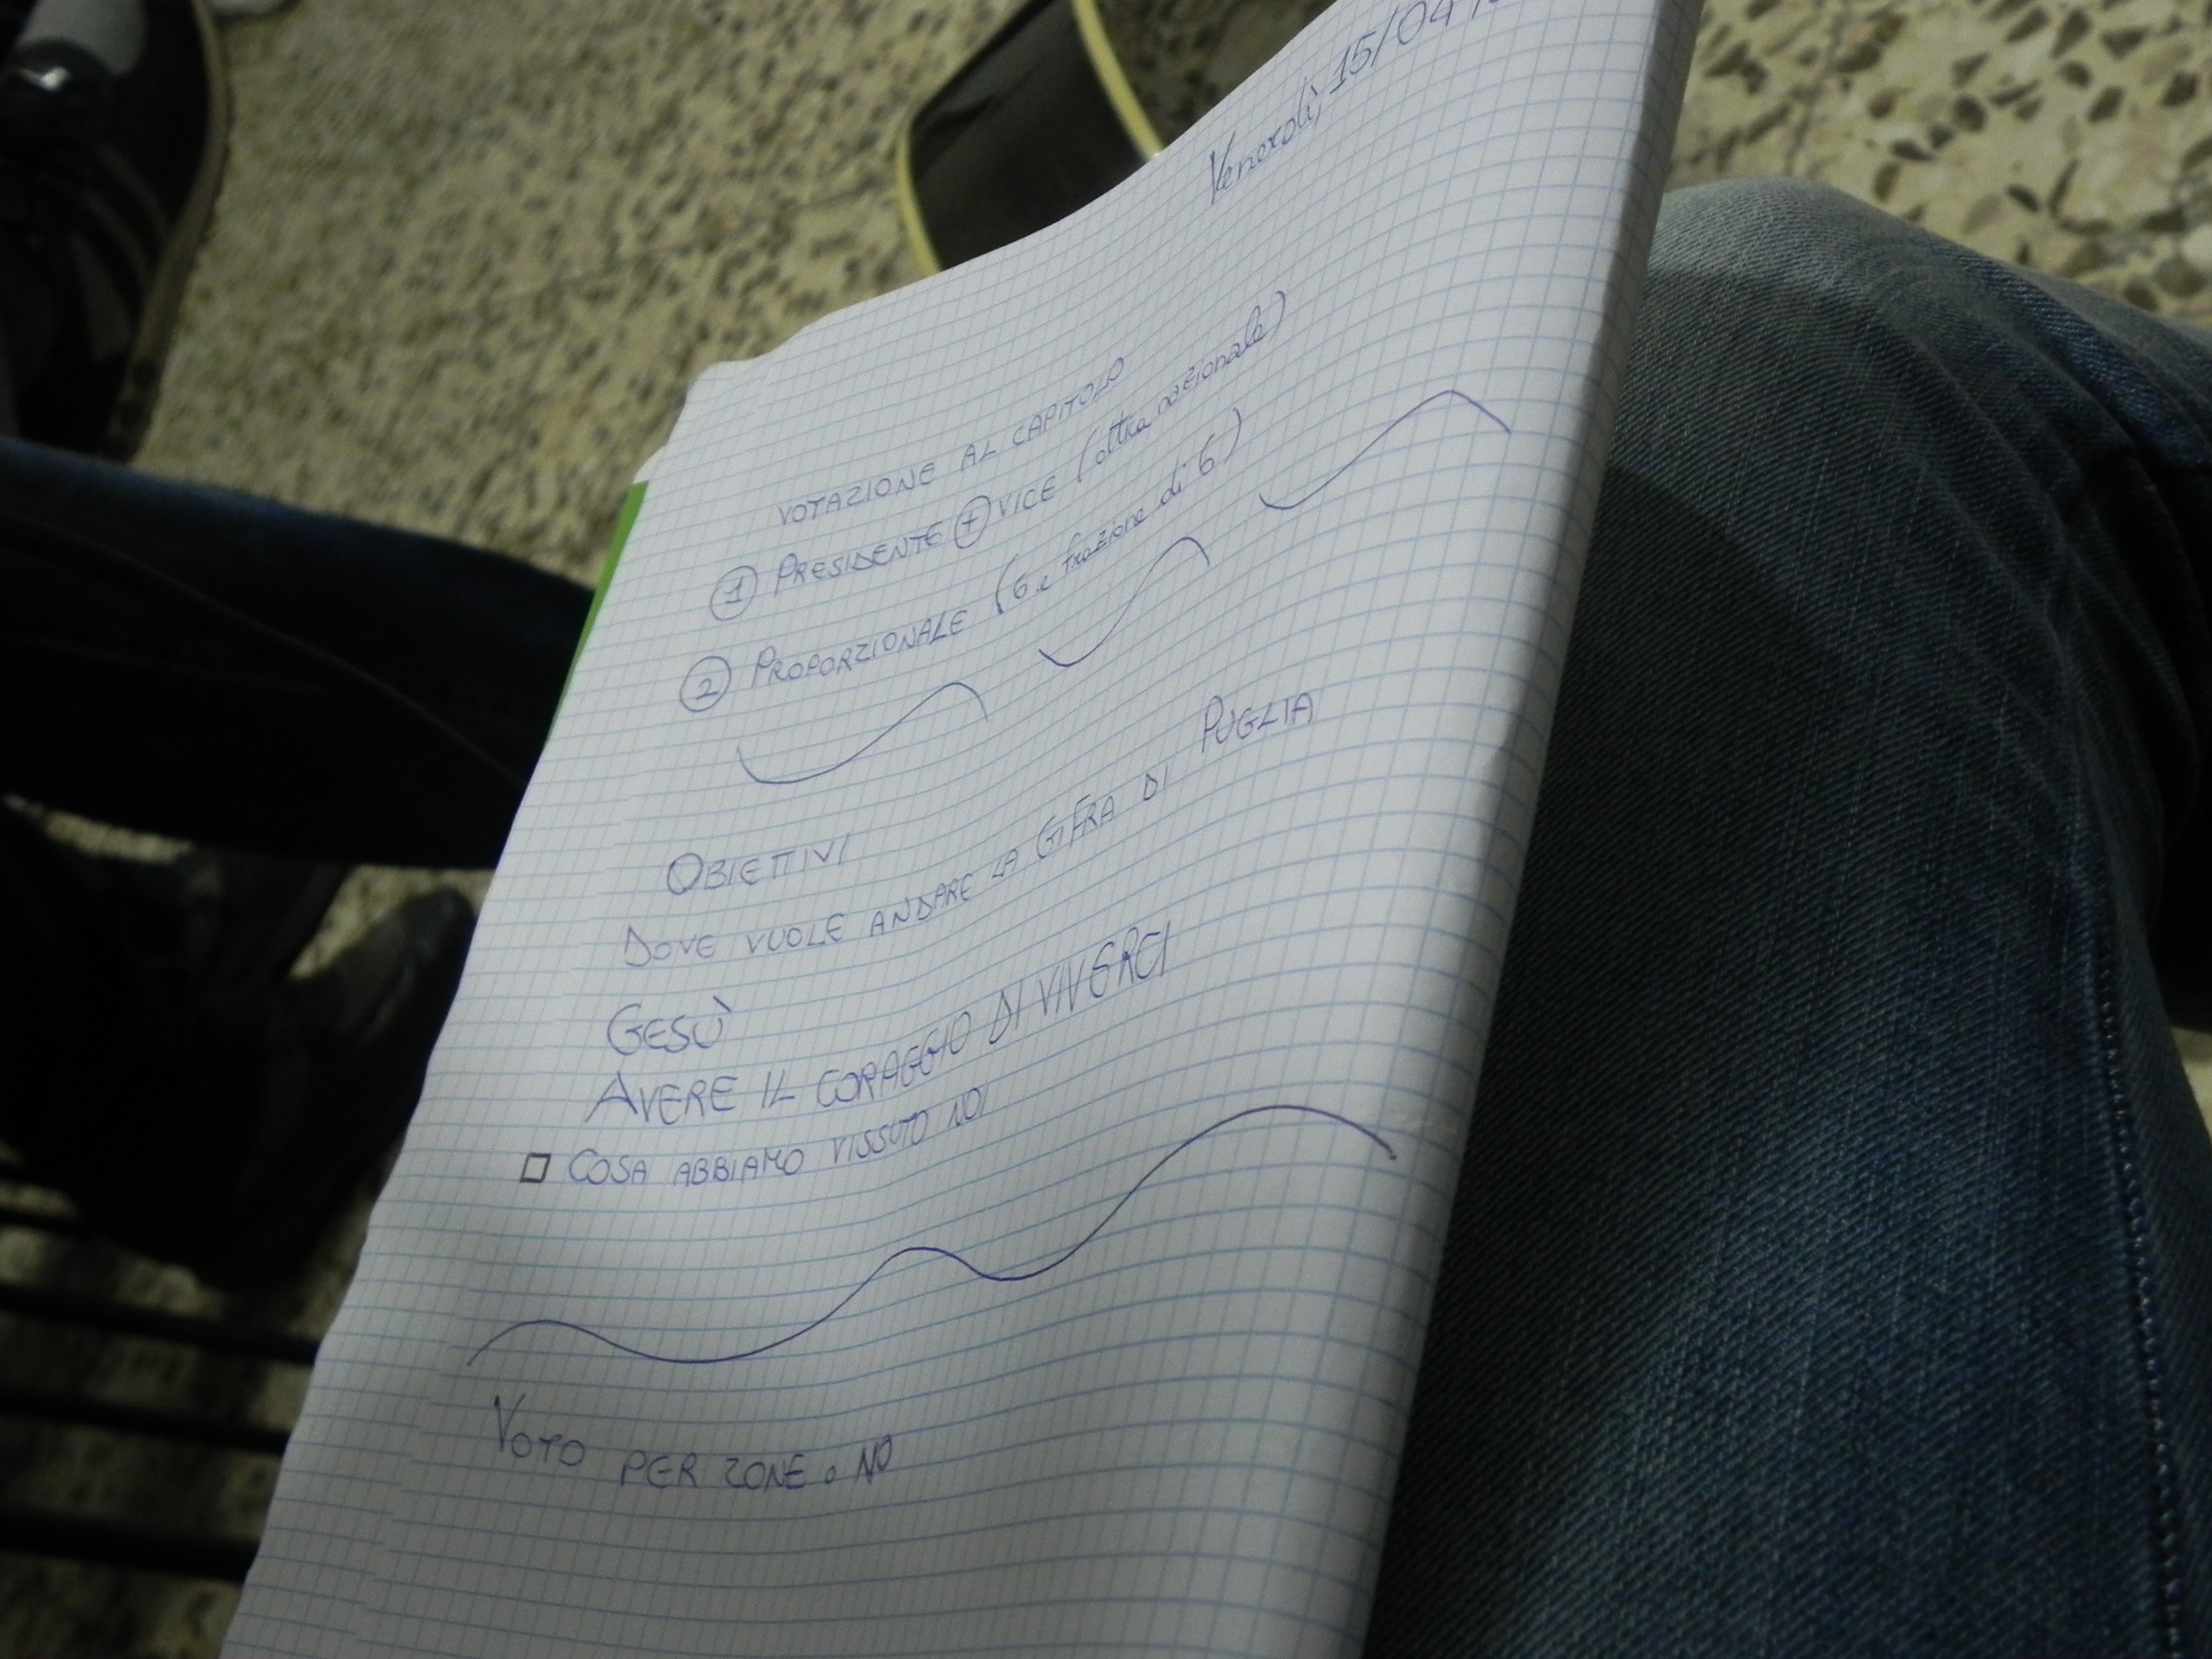 Venerdì, 15/04
VOTAZIONE AL CAPITOLO
1 PRESIDENTE + VICE (oltra nazionale)
2 PROPORZIONALE (6 e frazione di 6)
OBIETTIVI
DOVE VUOLE ANDARE LA GIFRA DI PUGLIA
GESÙ
AVERE IL CORAGGIO DI VIVERCI
COSA ABBIAMO VISSUTO NOI
VOTO PER ZONE o NO